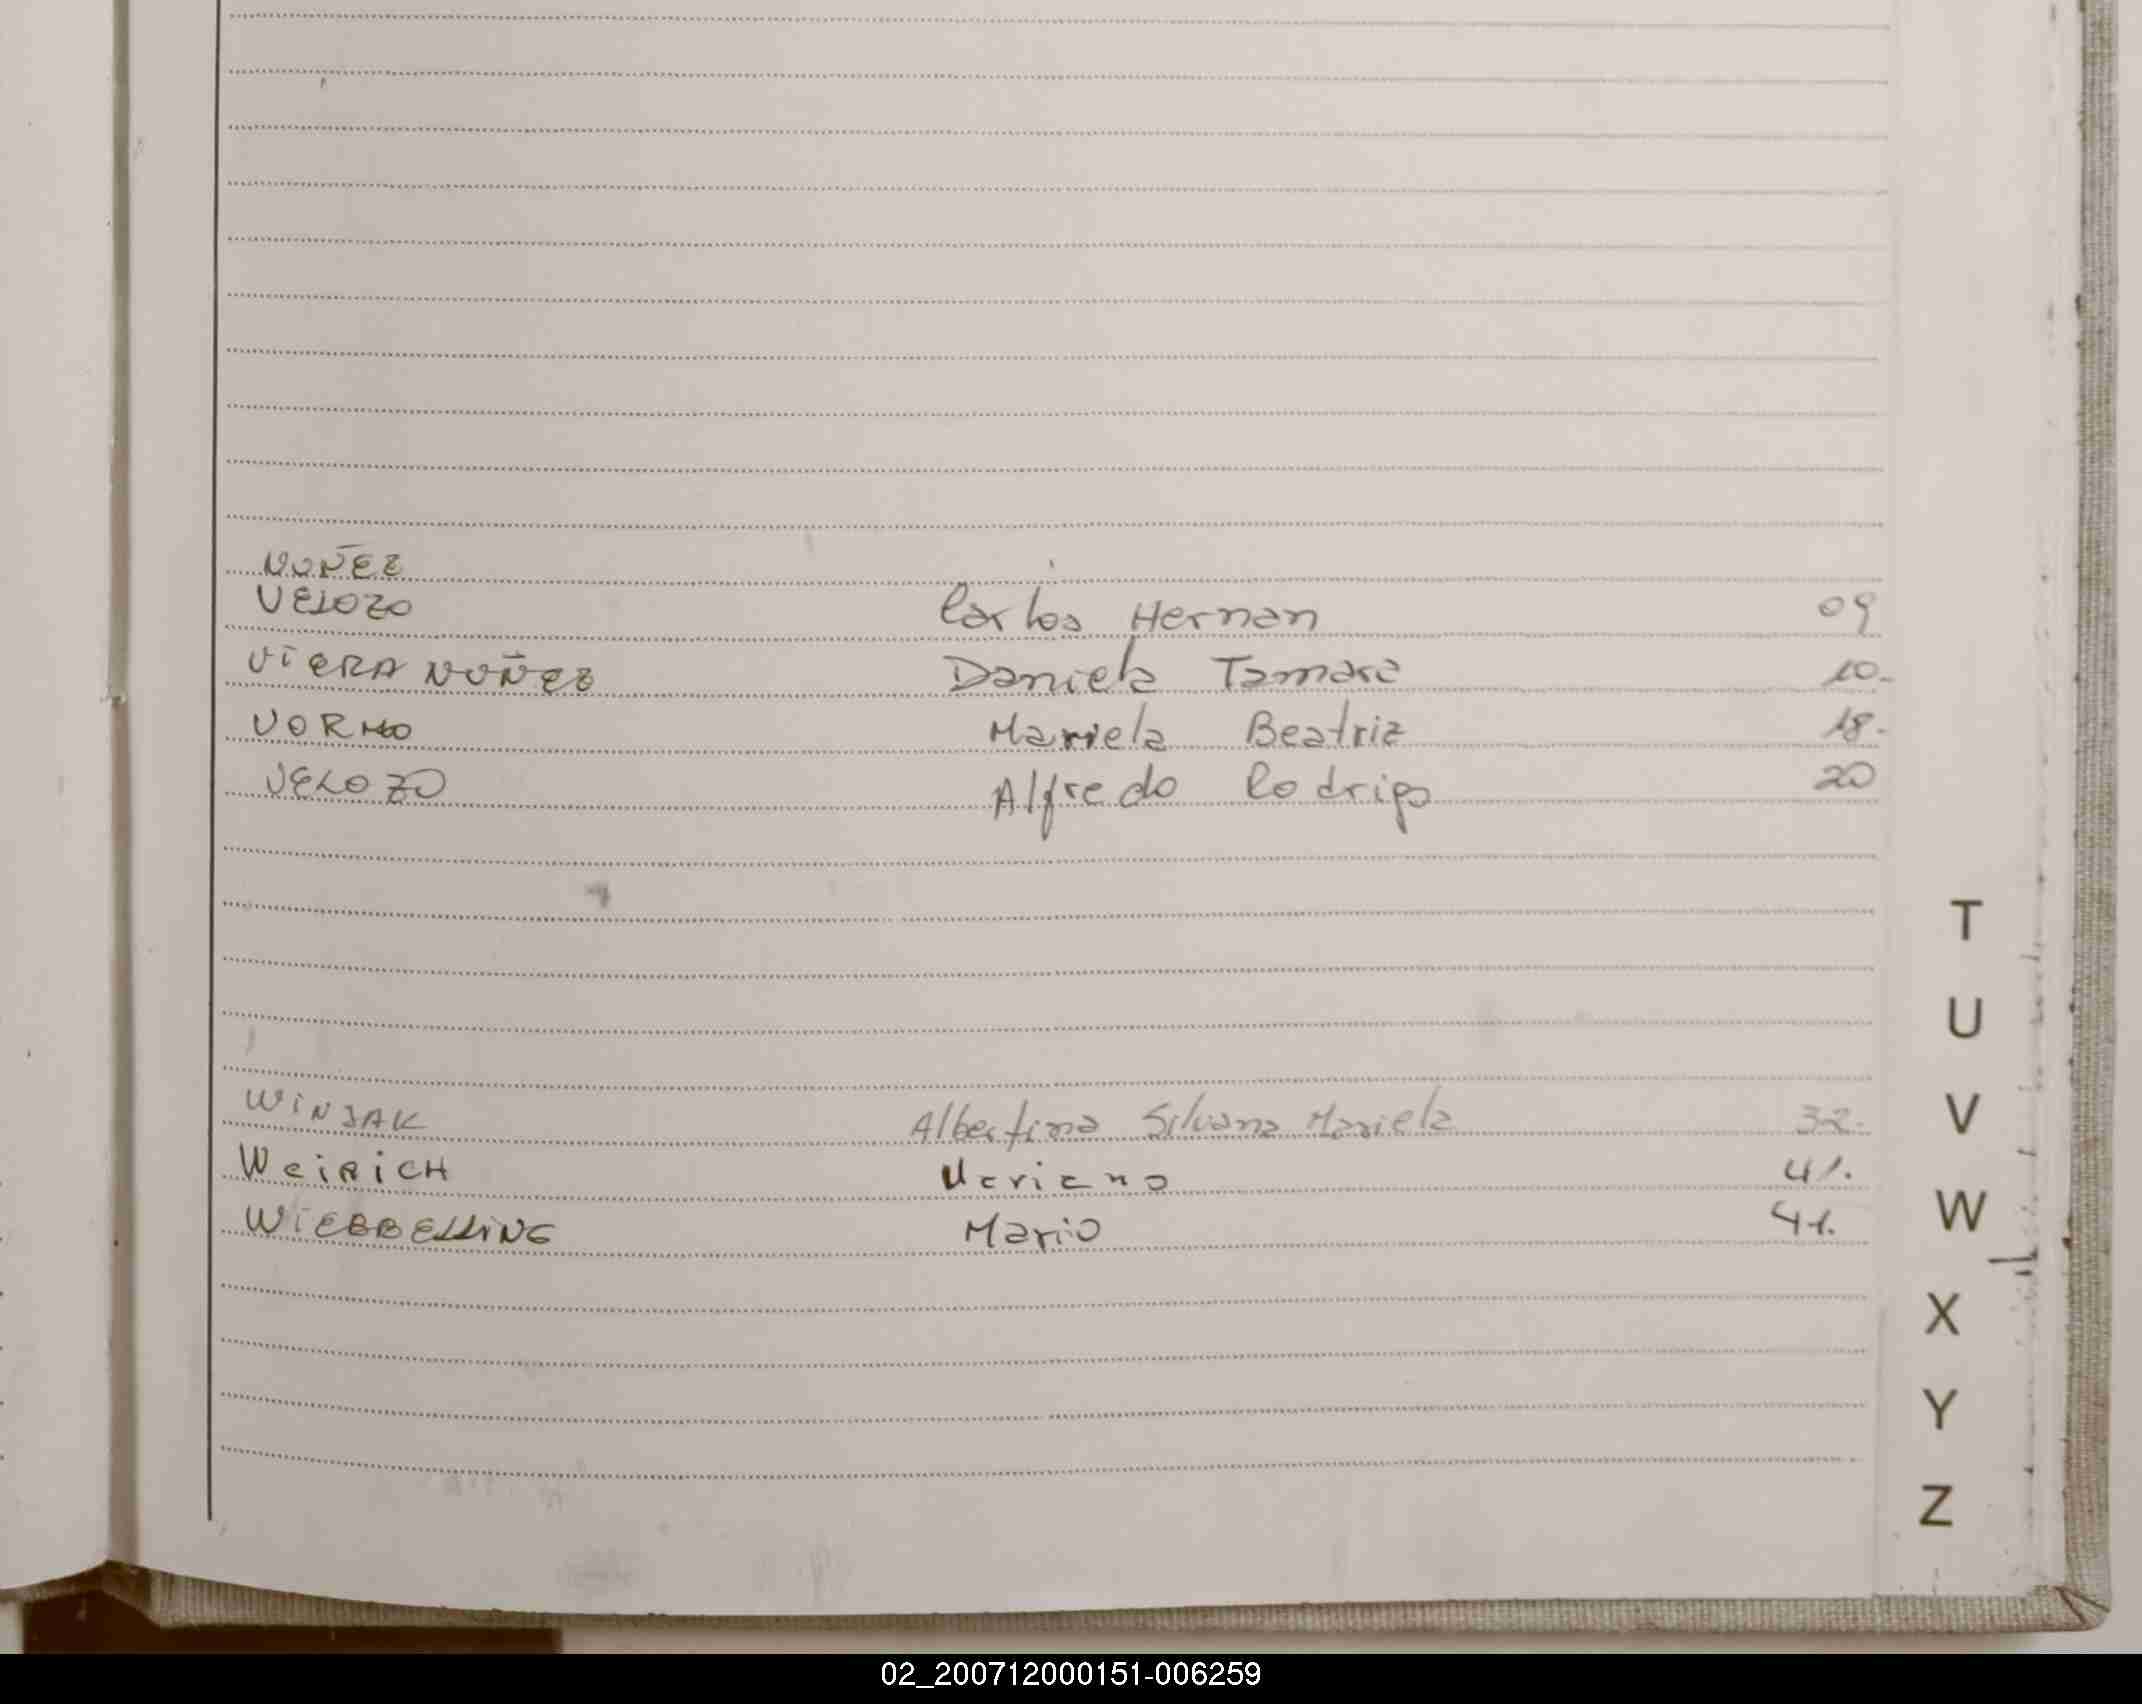 NUÑEZ
VELOZO Carlos Hernan 09
VIERA NUÑEZ Daniela Tamara 10.
VORMO Mariela Beatriz 18.
VELOZO Alfredo Rodrigo 20
T
U
V
WINJAK Albertina Silvana Mariela 32.
WEIRICH Mariano 41.
WIEBBELLING Mario 41.
W
X
Y
Z
02_200712000151-006259